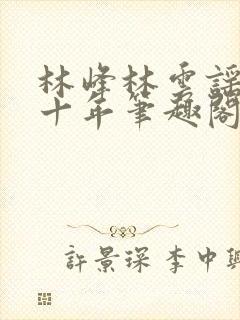 林峰林雲謠
十年筆趣閣
許景琛 李中興